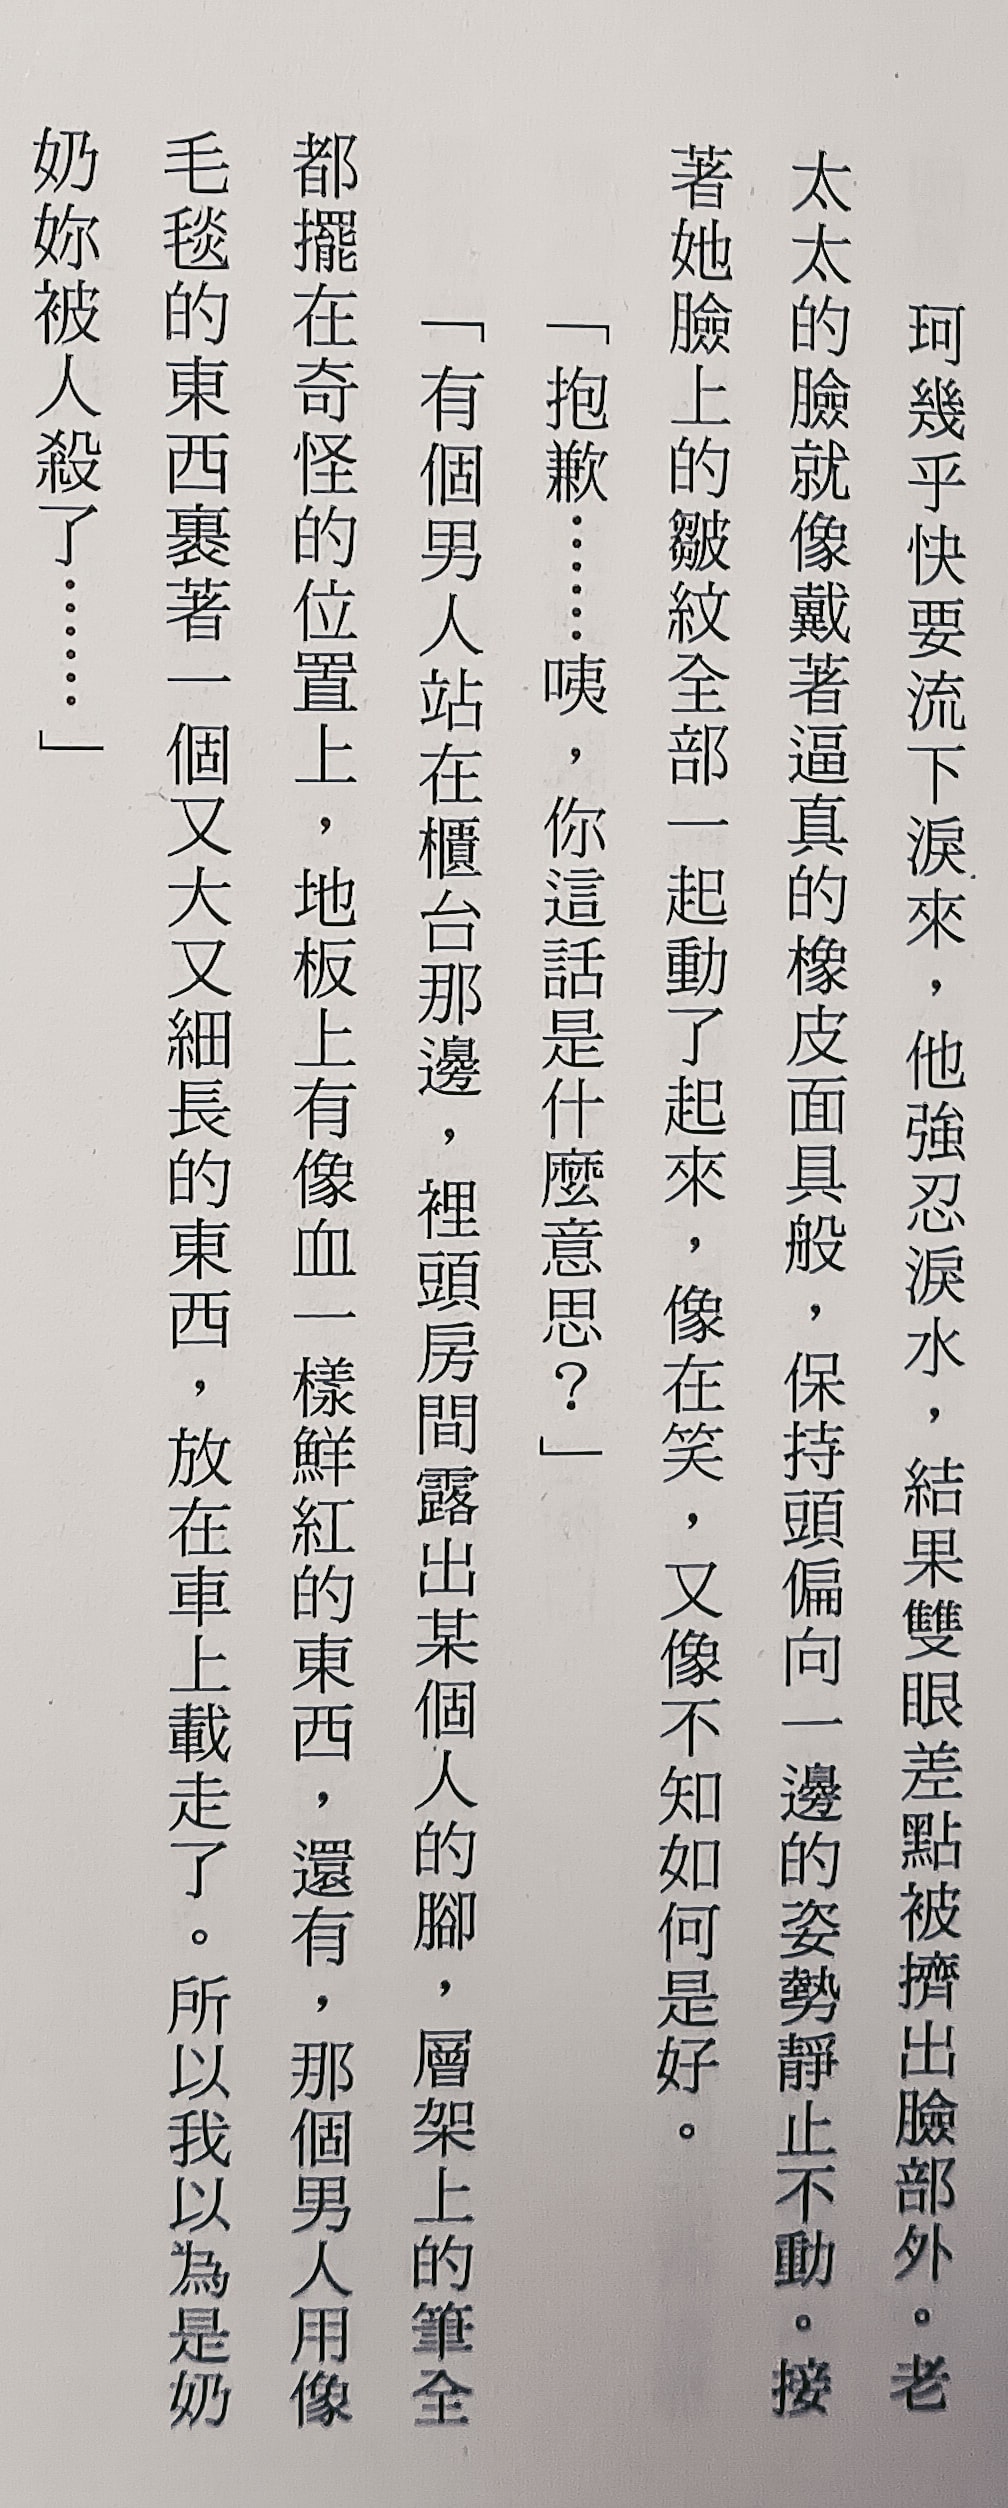 珂幾乎快要流下淚來，他強忍淚水，結果雙眼差點被擠出臉部外。老
太太的臉就像戴著逼真的橡皮面具般，保持頭偏向一邊的姿勢靜止不動。接
著她臉上的皺紋全部一起動了起來，像在笑，又像不知如何是好。
「抱歉……咦，你這話是什麼意思？」
「有個男人站在櫃台那邊，裡頭房間露出某個人的腳，層架上的筆全
都擺在奇怪的位置上，地板上有像血一樣鮮紅的東西，還有，那個男人用像
毛毯的東西裹著一個又大又細長的東西，放在車上載走了。所以我以為是奶
奶妳被人殺了……」